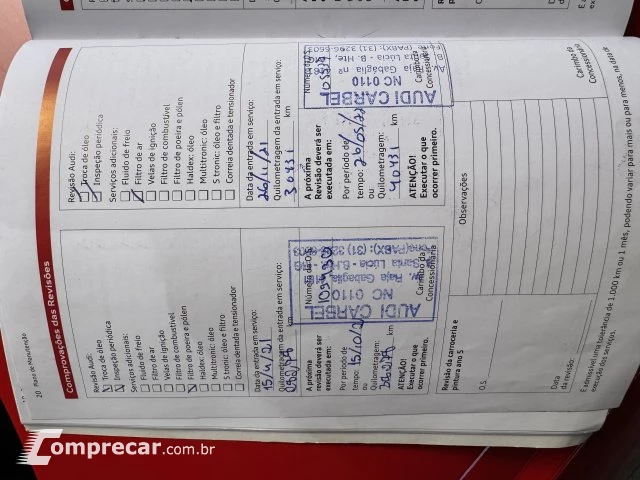 20 Plano de Manutenção
Comprovações das Revisões
Revisão Audi:
Troca de óleo
Inspeção periódica
Serviços adicionais:
Fluido de freio
Filtro de ar
Velas de ignição
Filtro de combustível
Filtro de poeira e pólen
Haldex: óleo
Multitronic: óleo
S tronic: óleo e filtro
Correia dentada e tensionador
Data da entrada em serviço:
15/4/21
Quilometragem da entrada em serviço:
km
A próxima
revisão deverá ser
executada em:
Por período de
tempo: 15/10/2
ou
Quilometragem:
km
ATENÇÃO!
Executar o que
ocorrer primeiro.
Número da O.S.
AUDI CARBEL
NC 0110
Carimbo da
Concessionária
Revisão da carroceria e
pintura ano 5
O.S.
Data
da revisão:
Revisão Audi:
Troca de óleo
Inspeção periódica
Serviços adicionais:
Fluido de freio
Filtro de ar
Velas de ignição
Filtro de combustível
Filtro de poeira e pólen
Haldex: óleo
Multitronic: óleo
S tronic: óleo e filtro
Correia dentada e tensionador
Data da entrada em serviço:
26/11/21
Quilometragem da entrada em serviço:
30731 km
A próxima
Revisão deverá ser
executada em:
Por período de
tempo: 26/05/22
ou
Quilometragem:
40731 km
ATENÇÃO!
Executar o que
ocorrer primeiro.
AUDI CARBEL
NC 0110
Av. Raja Gabaglia
Santa Lúcia - B. Hte.
(PABX): (31) 3296-6603
Carimbo da
Concessionária
Observações
É admissível uma tolerância de 1.000 km ou 1 mês, podendo variar para mais ou para menos, na data de
execução dos serviços.
Comprecar.com.br